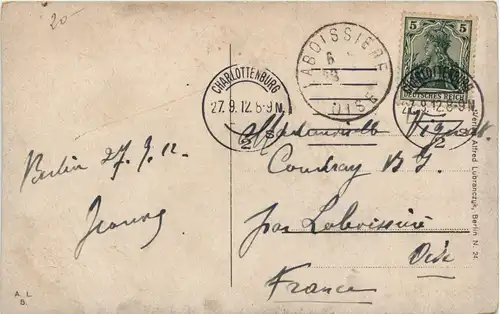 20-
5 5
DEUTSCHES REICH
CHARLOTTENBURG
27.9.12.8-9N.
2
LABOISSIERE
6
OISE
CHARLOTTENBURG
27.9.12.8-9N.
2
Berlin 27.9.12
Mademoiselle
Coudray B. G.
par Laboissière
Oise
France
Verlag Alfred Lubranczyk, Berlin N. 24.
A. L.
B.